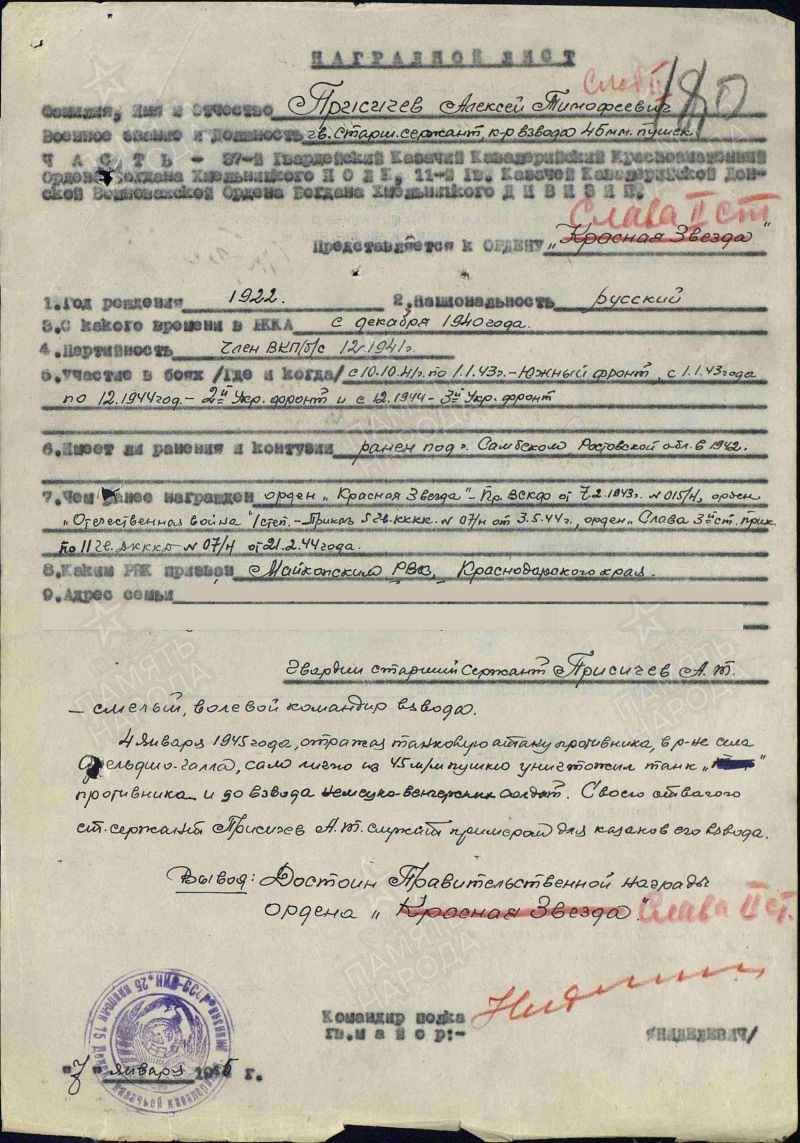 НАГРАДНОЙ ЛИСТ
Слава II 180
Фамилия, Имя и Отчество Присичев Алексей Тимофеевич
Военное звание и Должность гв. старш. сержант, к-р взвода 45мм. пушек
ЧАСТЬ – 37-й Гвардейский Казачий Кавалерийский Краснознаменный
Ордена Богдана Хмельницкого ПОЛК, 11-й Гв. Казачей Кавалерийской Дон-
ской Волновахской Ордена Богдана Хмельницкого ДИВИЗИИ.
Слава II ст
Представляется к ОРДЕНУ „Красная Звезда"
1. Год рождения 1922. 2. Национальность русский
3. С какого времени в ККА с декабря 1940 года.
4. Партийность Член ВКП/б/ с 12.1941 г.
5. Участие в боях /Где и когда/ с 10.10.41 г. по 1.1.43 г. – Южный фронт, с 1.1.43 года
по 12.1944 год. – 2й Укр. фронт и с 12.1944 – 3й Укр. фронт
6. Имеет ли ранения и контузии ранен под Самбеком, Ростовской обл. в 1942.
7. Чем ранее награжден орден „Красная Звезда" – Пр. ВСКФ от 7.2.1943 г. № 015/н, орден
„Отечественная война" I степ. – Приказ 5 гв. кккк. № 07/н от 3.5.44 г., орден „Слава 3й ст. прик.
по 11 гв. дккд № 07/н от 21.2.44 года.
8. Каким РВК призван Майкопским РВК, Краснодарского края.
9. Адрес семьи
Гвардии старший сержант Присичев А.Т.
– смелый, волевой командир взвода.
4 января 1945 года, отражая танковую атаку противника, в р-не села
Фельдшо-Галла, само лично из 45 м/м пушки уничтожил танк
противника и до взвода немецко-венгерских солдат. Своею отвагою
ст. сержант Присичев А.Т. служит примером для казаков его взвода.
Вывод: Достоин Правительственной награды
ордена „Красная Звезда". Слава II ст.
Командир полка
гв. майор:-
/НИДЕЛЕВИЧ/
"7" января 1945 г.
ПАМЯТЬ НАРОДА